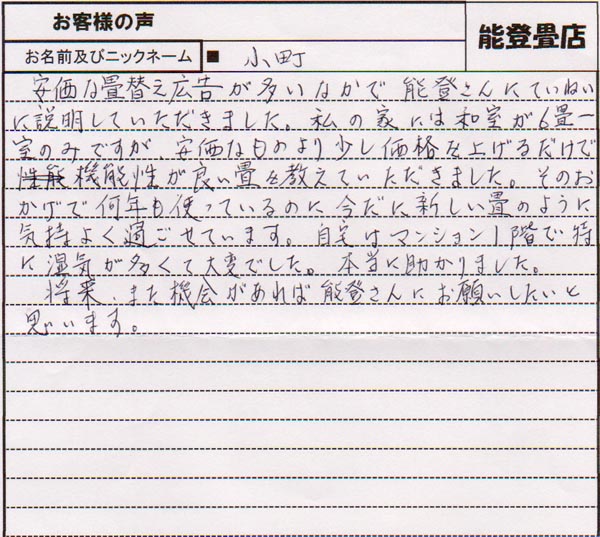 お客様の声
能登畳店
お名前及びニックネーム ■ 小町
安価な畳替え広告が多いなかで 能登さんにていねい
に説明していただきました。私の家には和室が6畳一
室のみですが 安価なものより少し価格を上げるだけで
機能性が良い畳を教えていただきました。そのお
かげで何年も使っているのに今だに新しい畳のように
気持よく過ごせています。自宅はマンション1階で特
に湿気が多くて大変でした。本当に助かりました。
将来、また機会があれば能登さんにお願いしたいと
思います。